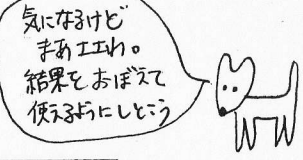 気になるけど
まあエエわ。
結果をおぼえて
使えるようにしとこう